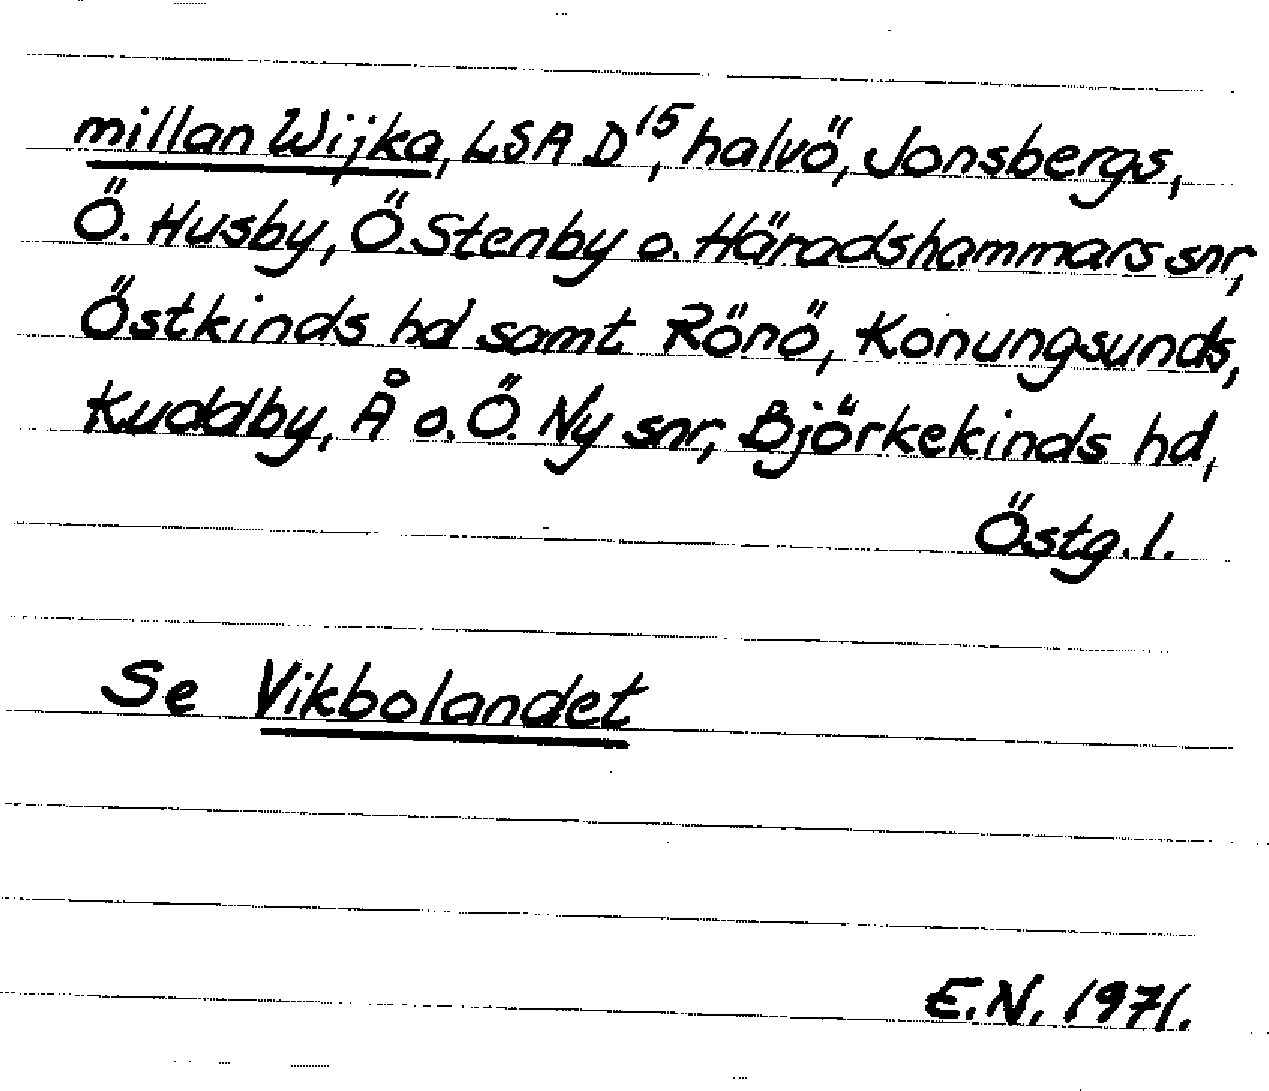 millan Wijka, LSA D15, halvö, Jonsbergs,
Ö. Husby, Ö. Stenby o. Häradshammars snr,
Östkinds hd samt Rönö, Konungsunds,
Kuddby, Å o. Ö. Ny snr, Björkekinds hd,
Östg. l.
Se Vikbolandet
E.N. 1971.